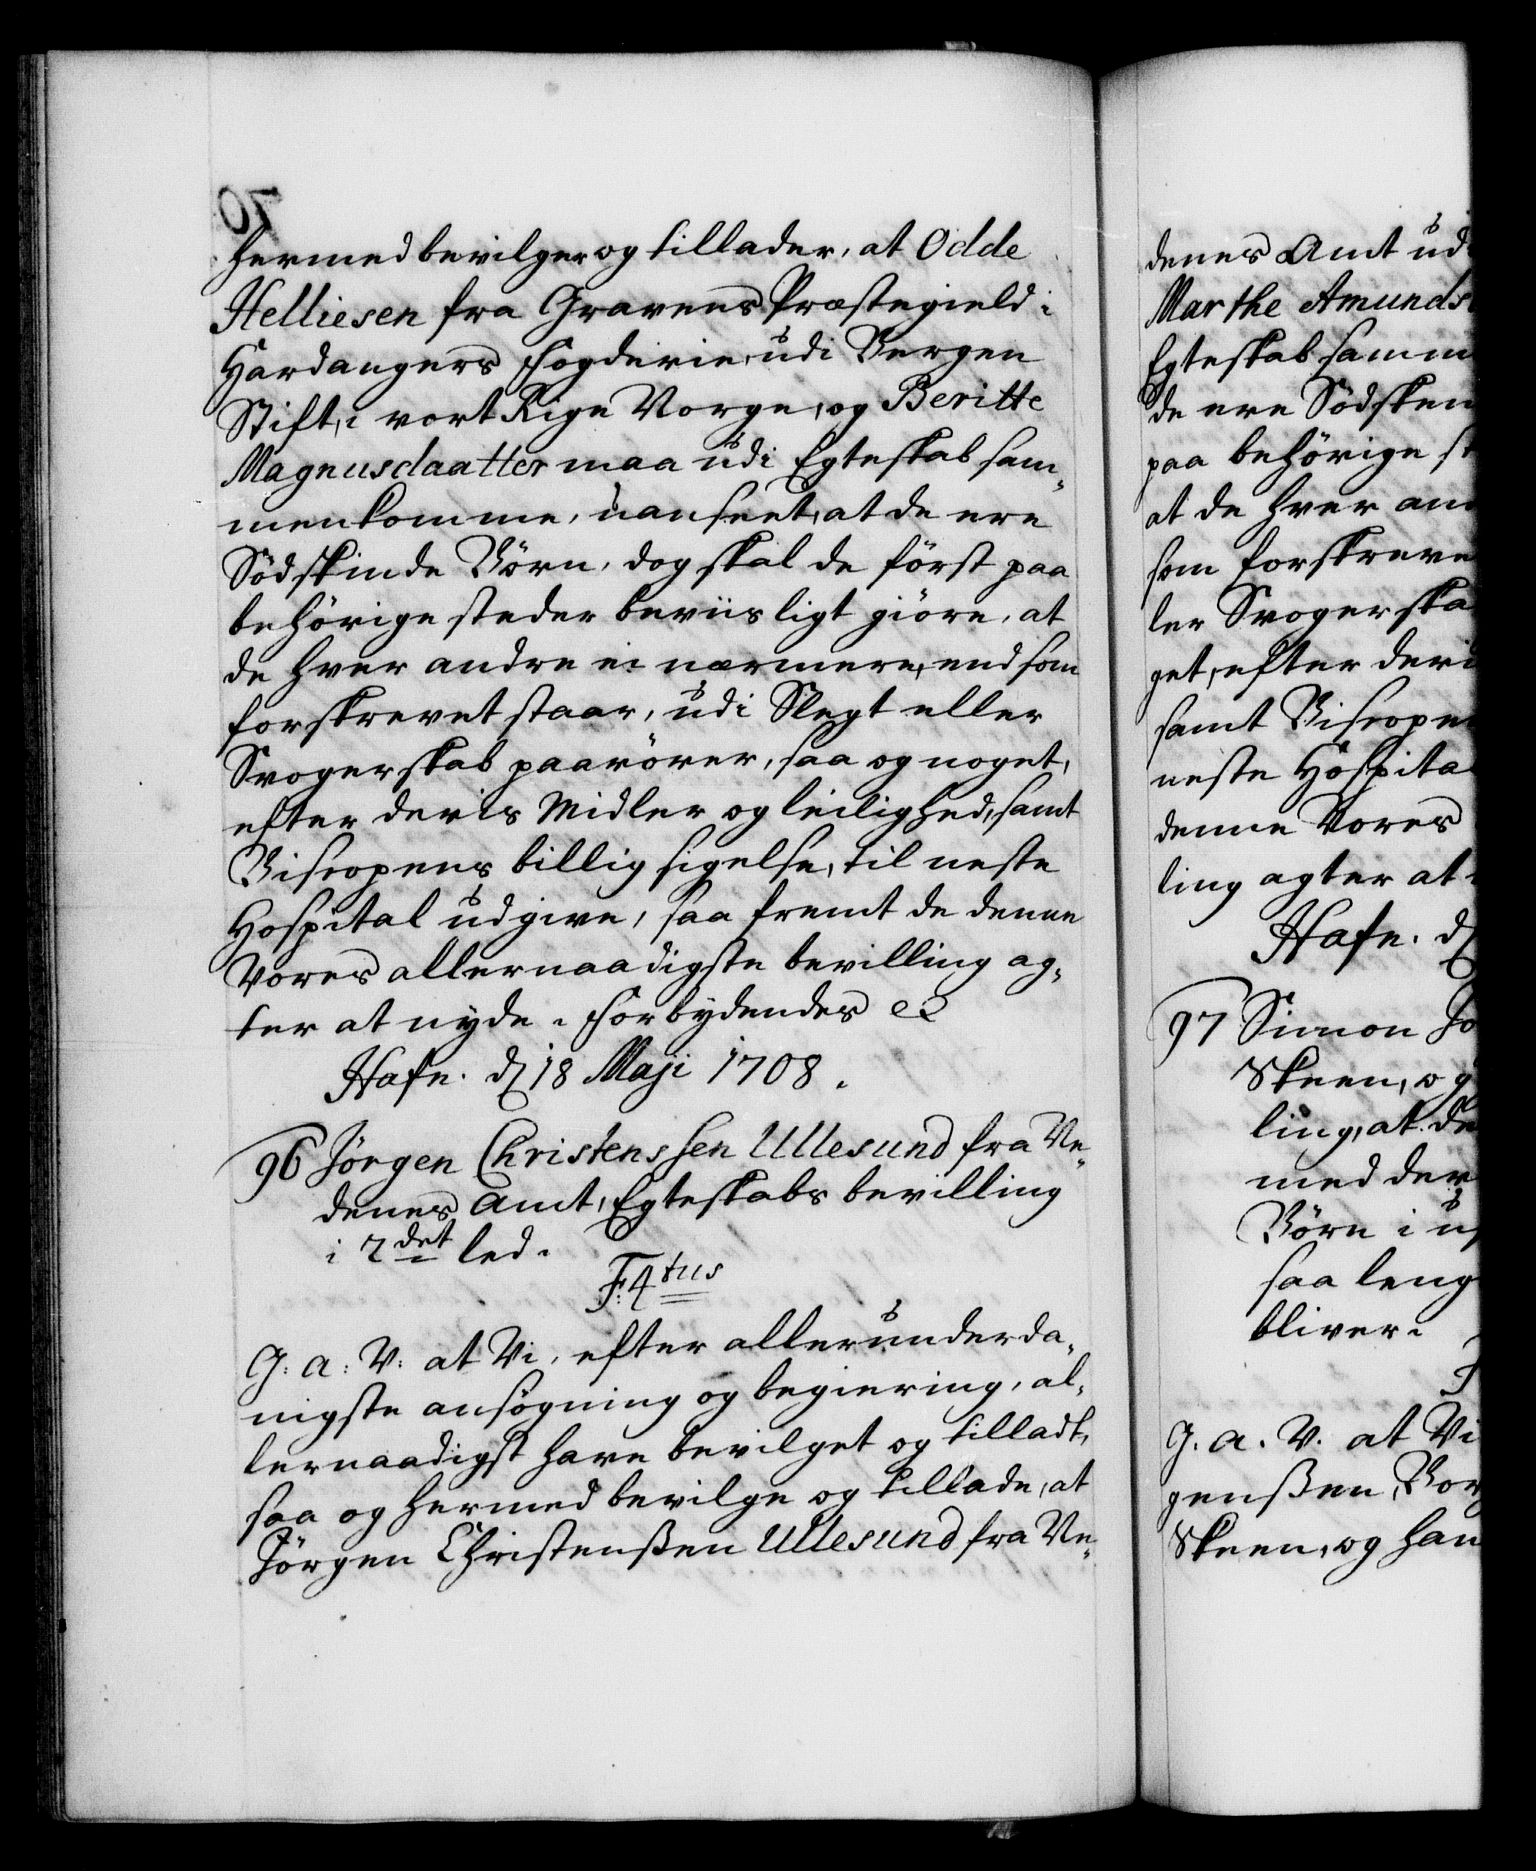 hermed bevilger og tillader, at Odde
Helliesen fra Gravens Præstegield i
Hardangers Fogderie, udi Bergen
Stift, i vort Rige Norge, og Beritte
Magnusdaatter maa udi Egteskab sam-
menkomme, uanseet, at de ere
Södskinde Börn, dog skal de först paa
behörige steder beviisligt giöre, at
de hver andre ei nærmere, end som
forskrevet staar, udi Slegt eller
Svogerskab paarörer, saa og noget,
efter deris Midler og leilighed, samt
Biscopens billig sigelse, til neste
Hospital udgive, saa fremt de denne
Vores allernaadigste bevilling ag-
ter at nyde. Forbydendes etc
Hafn. d 18 Maji 1708.
96 Jörgen Christenssen Ullesund fra Ne-
denes Amt, Egteskabs bevilling
i 2det led.
F: 4tus
G: A: V: at Vi, efter allerunderda-
nigste ansøgning og begiering, al-
lernaadigst have bevilget og tilladt,
saa og hermed bevilge og tillade, at
Jörgen Christenßen Ullesund fra Ne-
denes Amt ud
Marthe Amunds
Egteskab samm
de ere Södsken
paa behörige st
at de hver an
som forskreve
ler Svogerska
get, efter deri
samt Biscopen
neste Hospita
denne Vores
ling agter at
Hafn. d
97 Simon Jo
Skeen, og
ling, at de
med der
Börn i u
saa leng
bliver.
G. A. V. at Vi
genßen, Bor
Skeen, og han